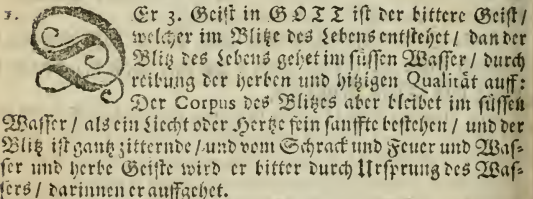 3. DEr 3. Geist in GOTT ist der bittere Geist /
welcher im Blitze des Lebens entstehet / dan der
Blitz des Lebens gehet im süssen Wasser / durch
reibung der herben und hitzigen Qualität auff:
Der Corpus des Blitzes aber bleibet im süssen
Wasser / als ein Liecht oder Hertze fein sanffte bestehen / und der
Blitz ist gantz zitternde / und vom Schrack und Feuer und Was-
ser und herbe Geiste wird er bitter durch Ursprung des Was-
sers / darinnen er auffgehet.